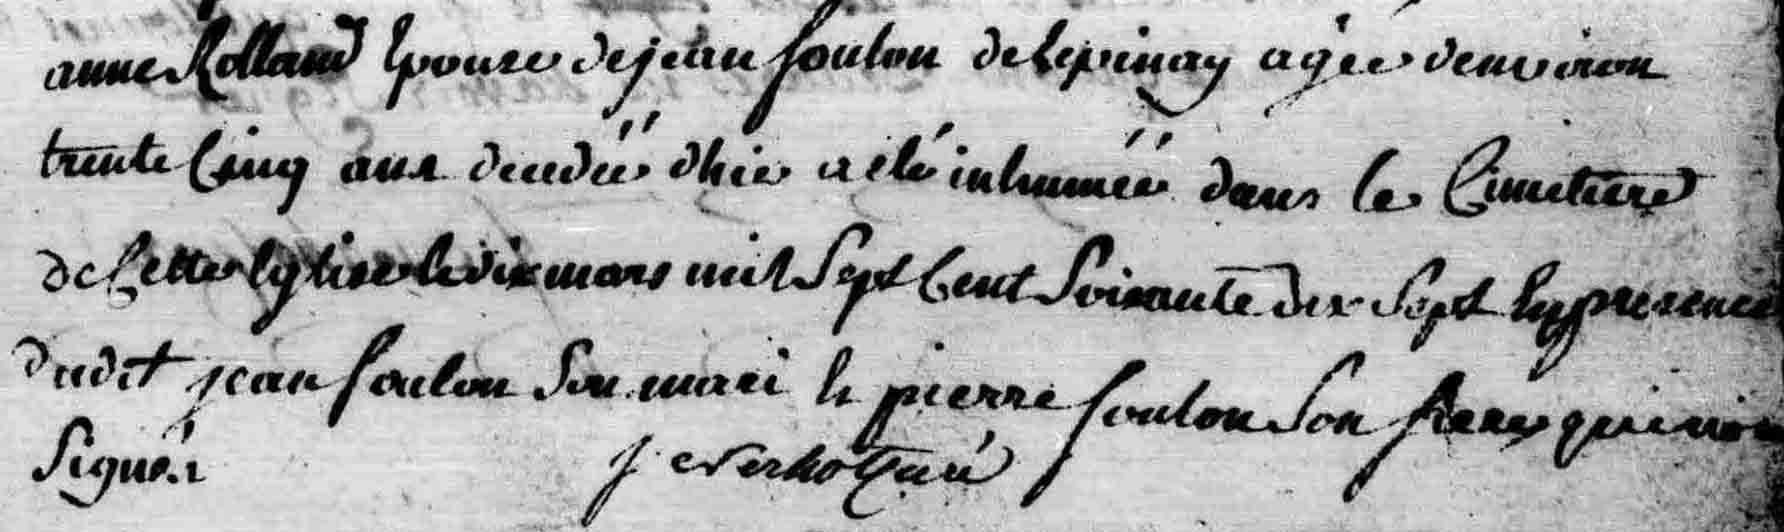 anne Rolland Epouse de jean foulon de Lepinay agée denviron
trente Cinq ans decedéé dhier a été inhuméé dans le Cimetiere
de Cette Eglise le dix mars mil Sept Cent Soixante dix Sept En presence
dudit jean foulon Son mari Et pierre foulon Son frere qui
Signér